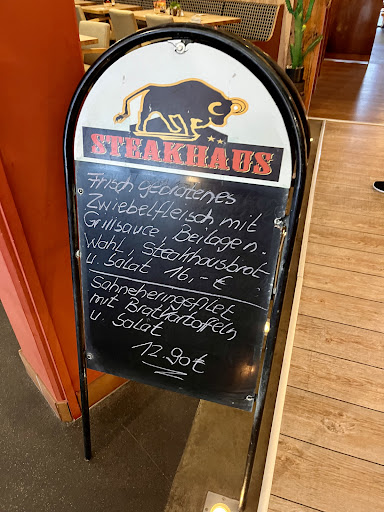 STEAKHAUS
Frisch gebratenes
Zwiebelfleisch mit
Grillsauce Beilagen.
Wahl, Steakhausbrot
u. Salat 16,-€
Sahneheringsfilet
mit Bratkartoffeln
u. Salat
12.90€